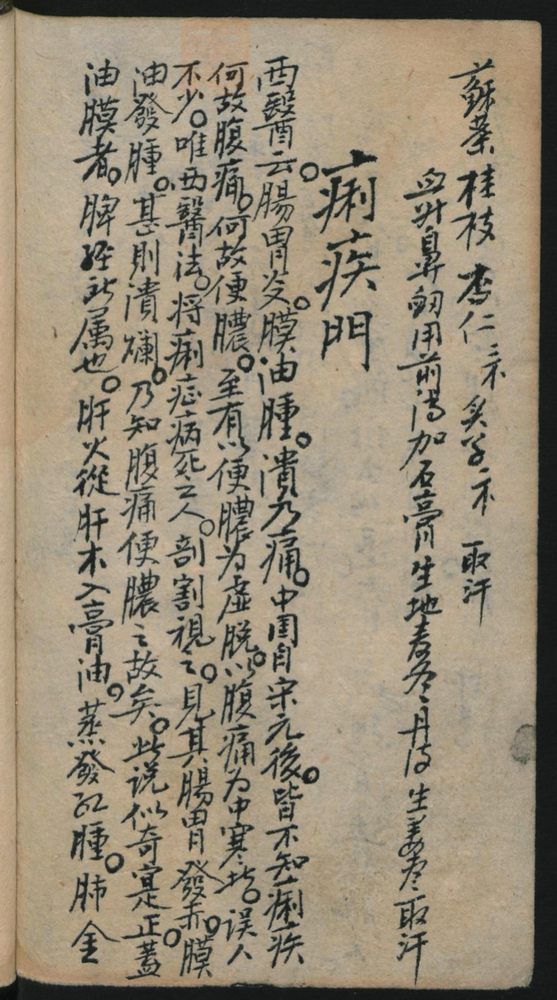 蘇葉 桂枝 杏仁 三禾 炙子一禾 取汗
血計鼻衄用前湯加石膏生地麦冬丹皮生姜枣取汗
痢疾門
西醫云。腸胃炎。膜油腫。潰乃痛。中国自宋元後。皆不知痢疾
何故腹痛。何故便膿。至有以便膿为虚脱。以腹痛为中寒者。误人
不少。唯西醫法。将痢症病死之人。剖割視之。見其腸胃發赤。膜
油發腫。甚則潰爛。乃知腹痛便膿之故矣。此説似奇寔正。蓋
油膜者。脾經所属也。肝火從肝木入膏油。蒸發紅腫。肺金